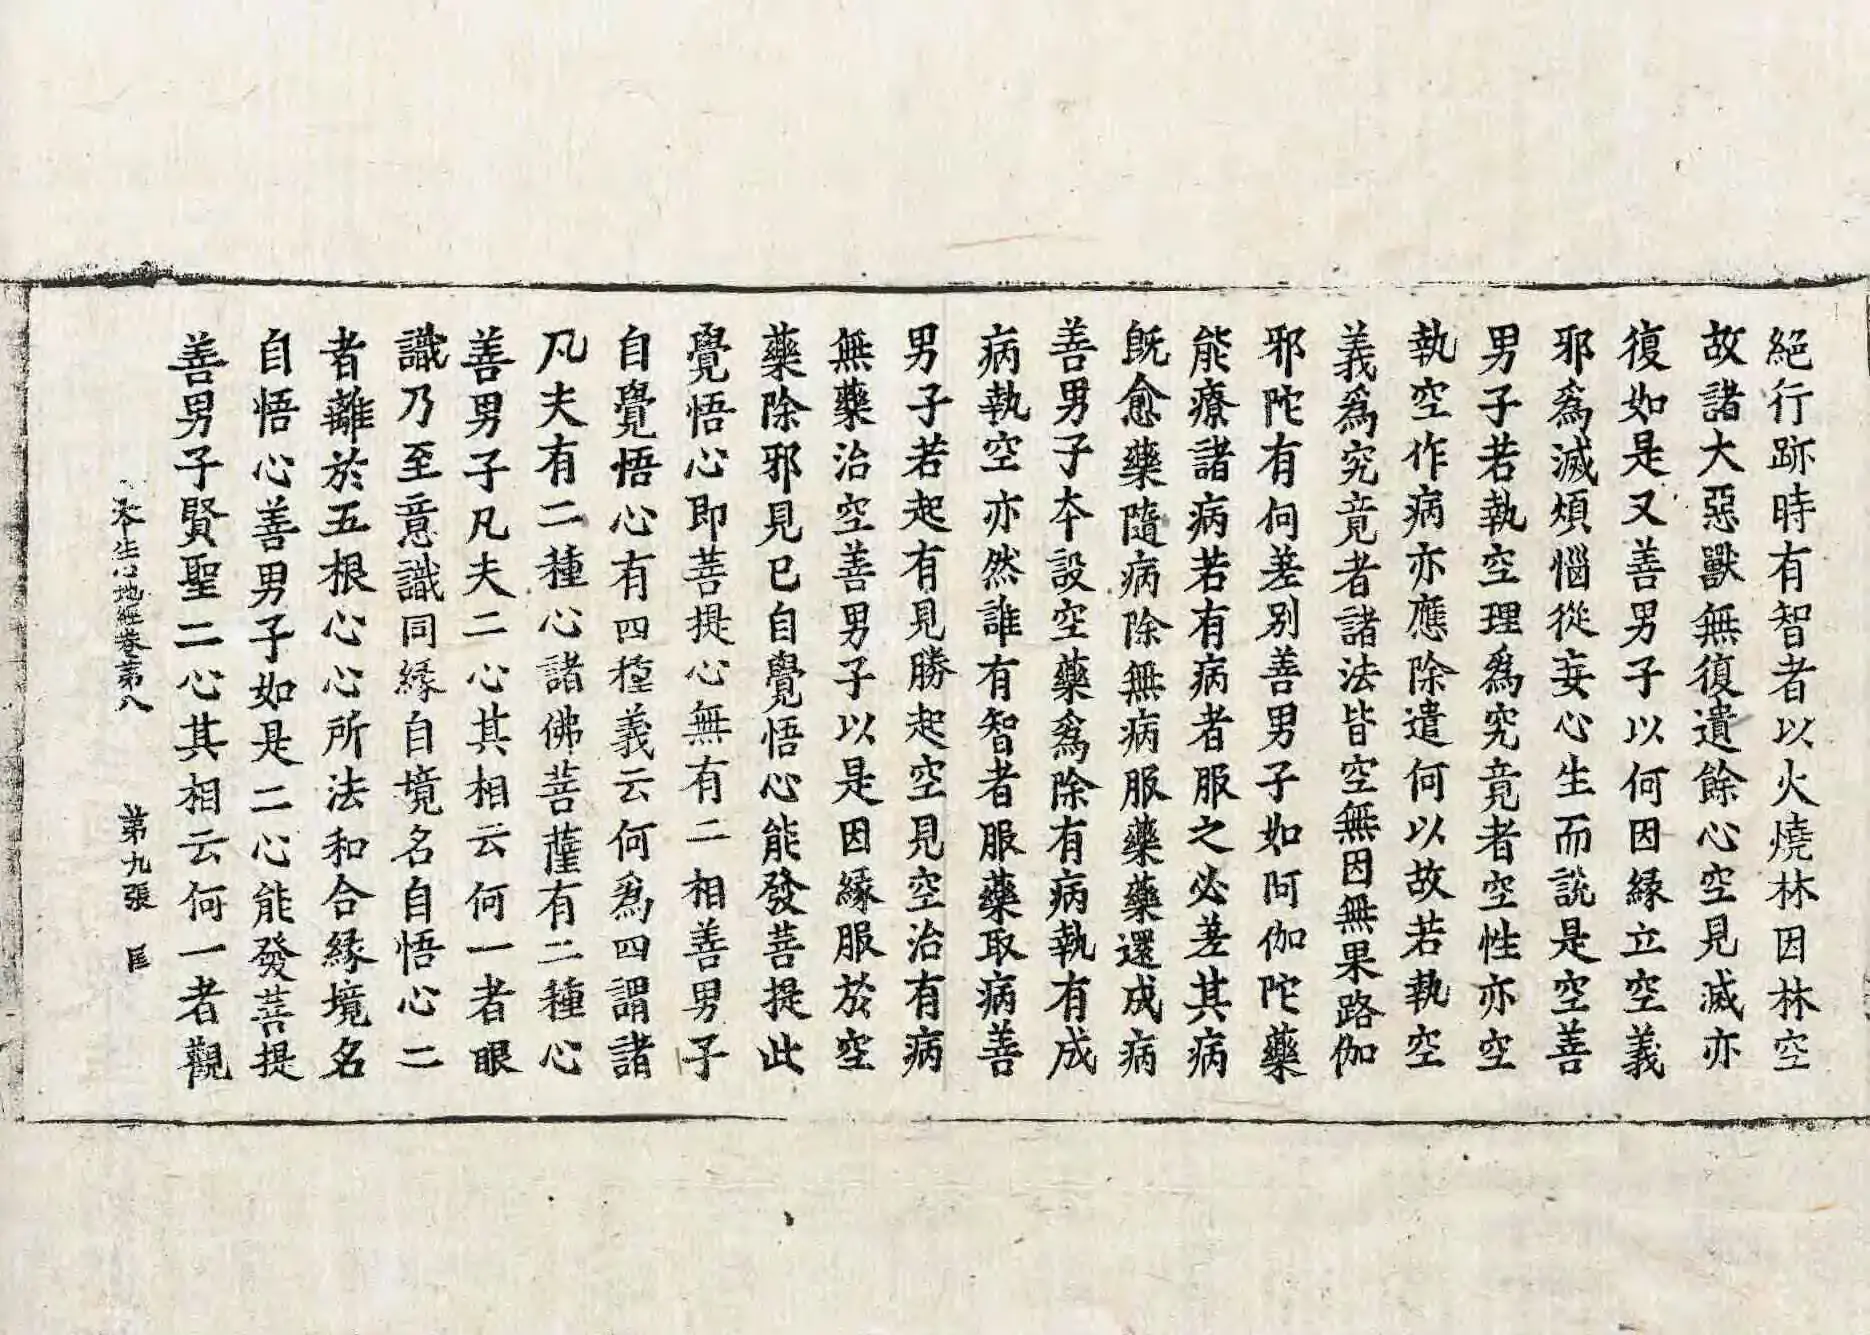 絕行跡時有智者以火燒林因林空
故諸大惡獸無復遺餘心空見滅亦
復如是又善男子以何因緣立空義
邪爲滅煩惱從妄心生而說是空善
男子若執空理爲究竟者空性亦空
執空作病亦應除遣何以故若執空
義爲究竟者諸法皆空無因無果路伽
邪陀有何差別善男子如阿伽陀藥
能療諸病若有病者服之必差其病
旣愈藥隨病除無病服藥藥還成病
善男子本設空藥爲除有病執有成
病執空亦然誰有智者服藥取病善
男子若起有見勝起空見空治有病
無藥治空善男子以是因緣服於空
藥除邪見已自覺悟心能發菩提此
覺悟心即菩提心無有二相善男子
自覺悟心有四種義云何爲四謂諸
凡夫有二種心諸佛菩薩有二種心
善男子凡夫二心其相云何一者眼
識乃至意識同緣自境名自悟心二
者離於五根心心所法和合緣境名
自悟心善男子如是二心能發菩提
善男子賢聖二心其相云何一者觀
本生心地經卷第八 第九張 匡